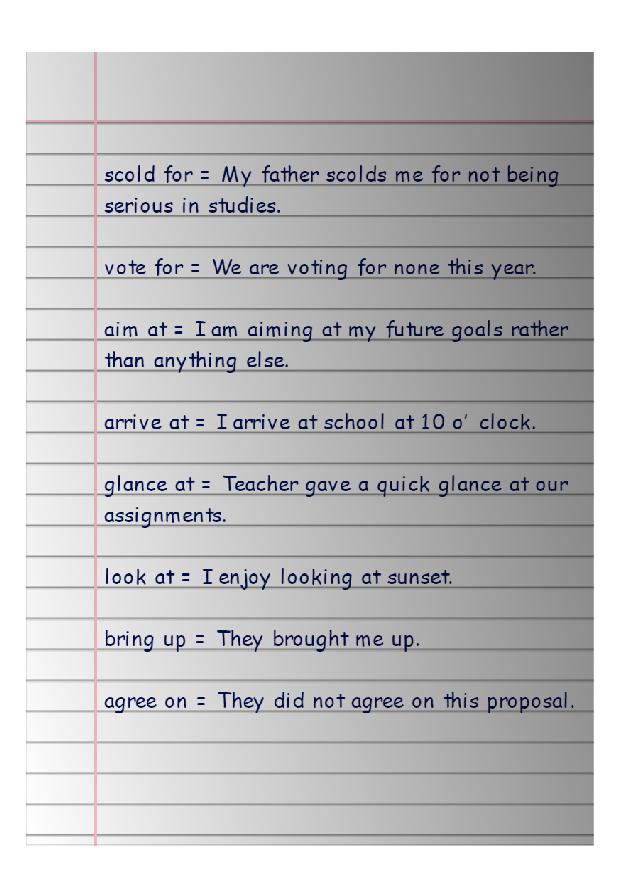 scold for = My father scolds me for not being
serious in studies.
vote for = We are voting for none this year.
aim at = I am aiming at my future goals rather
than anything else.
arrive at = I arrive at school at 10 o' clock.
glance at = Teacher gave a quick glance at our
assignments.
look at = I enjoy looking at sunset.
bring up = They brought me up.
agree on = They did not agree on this proposal.